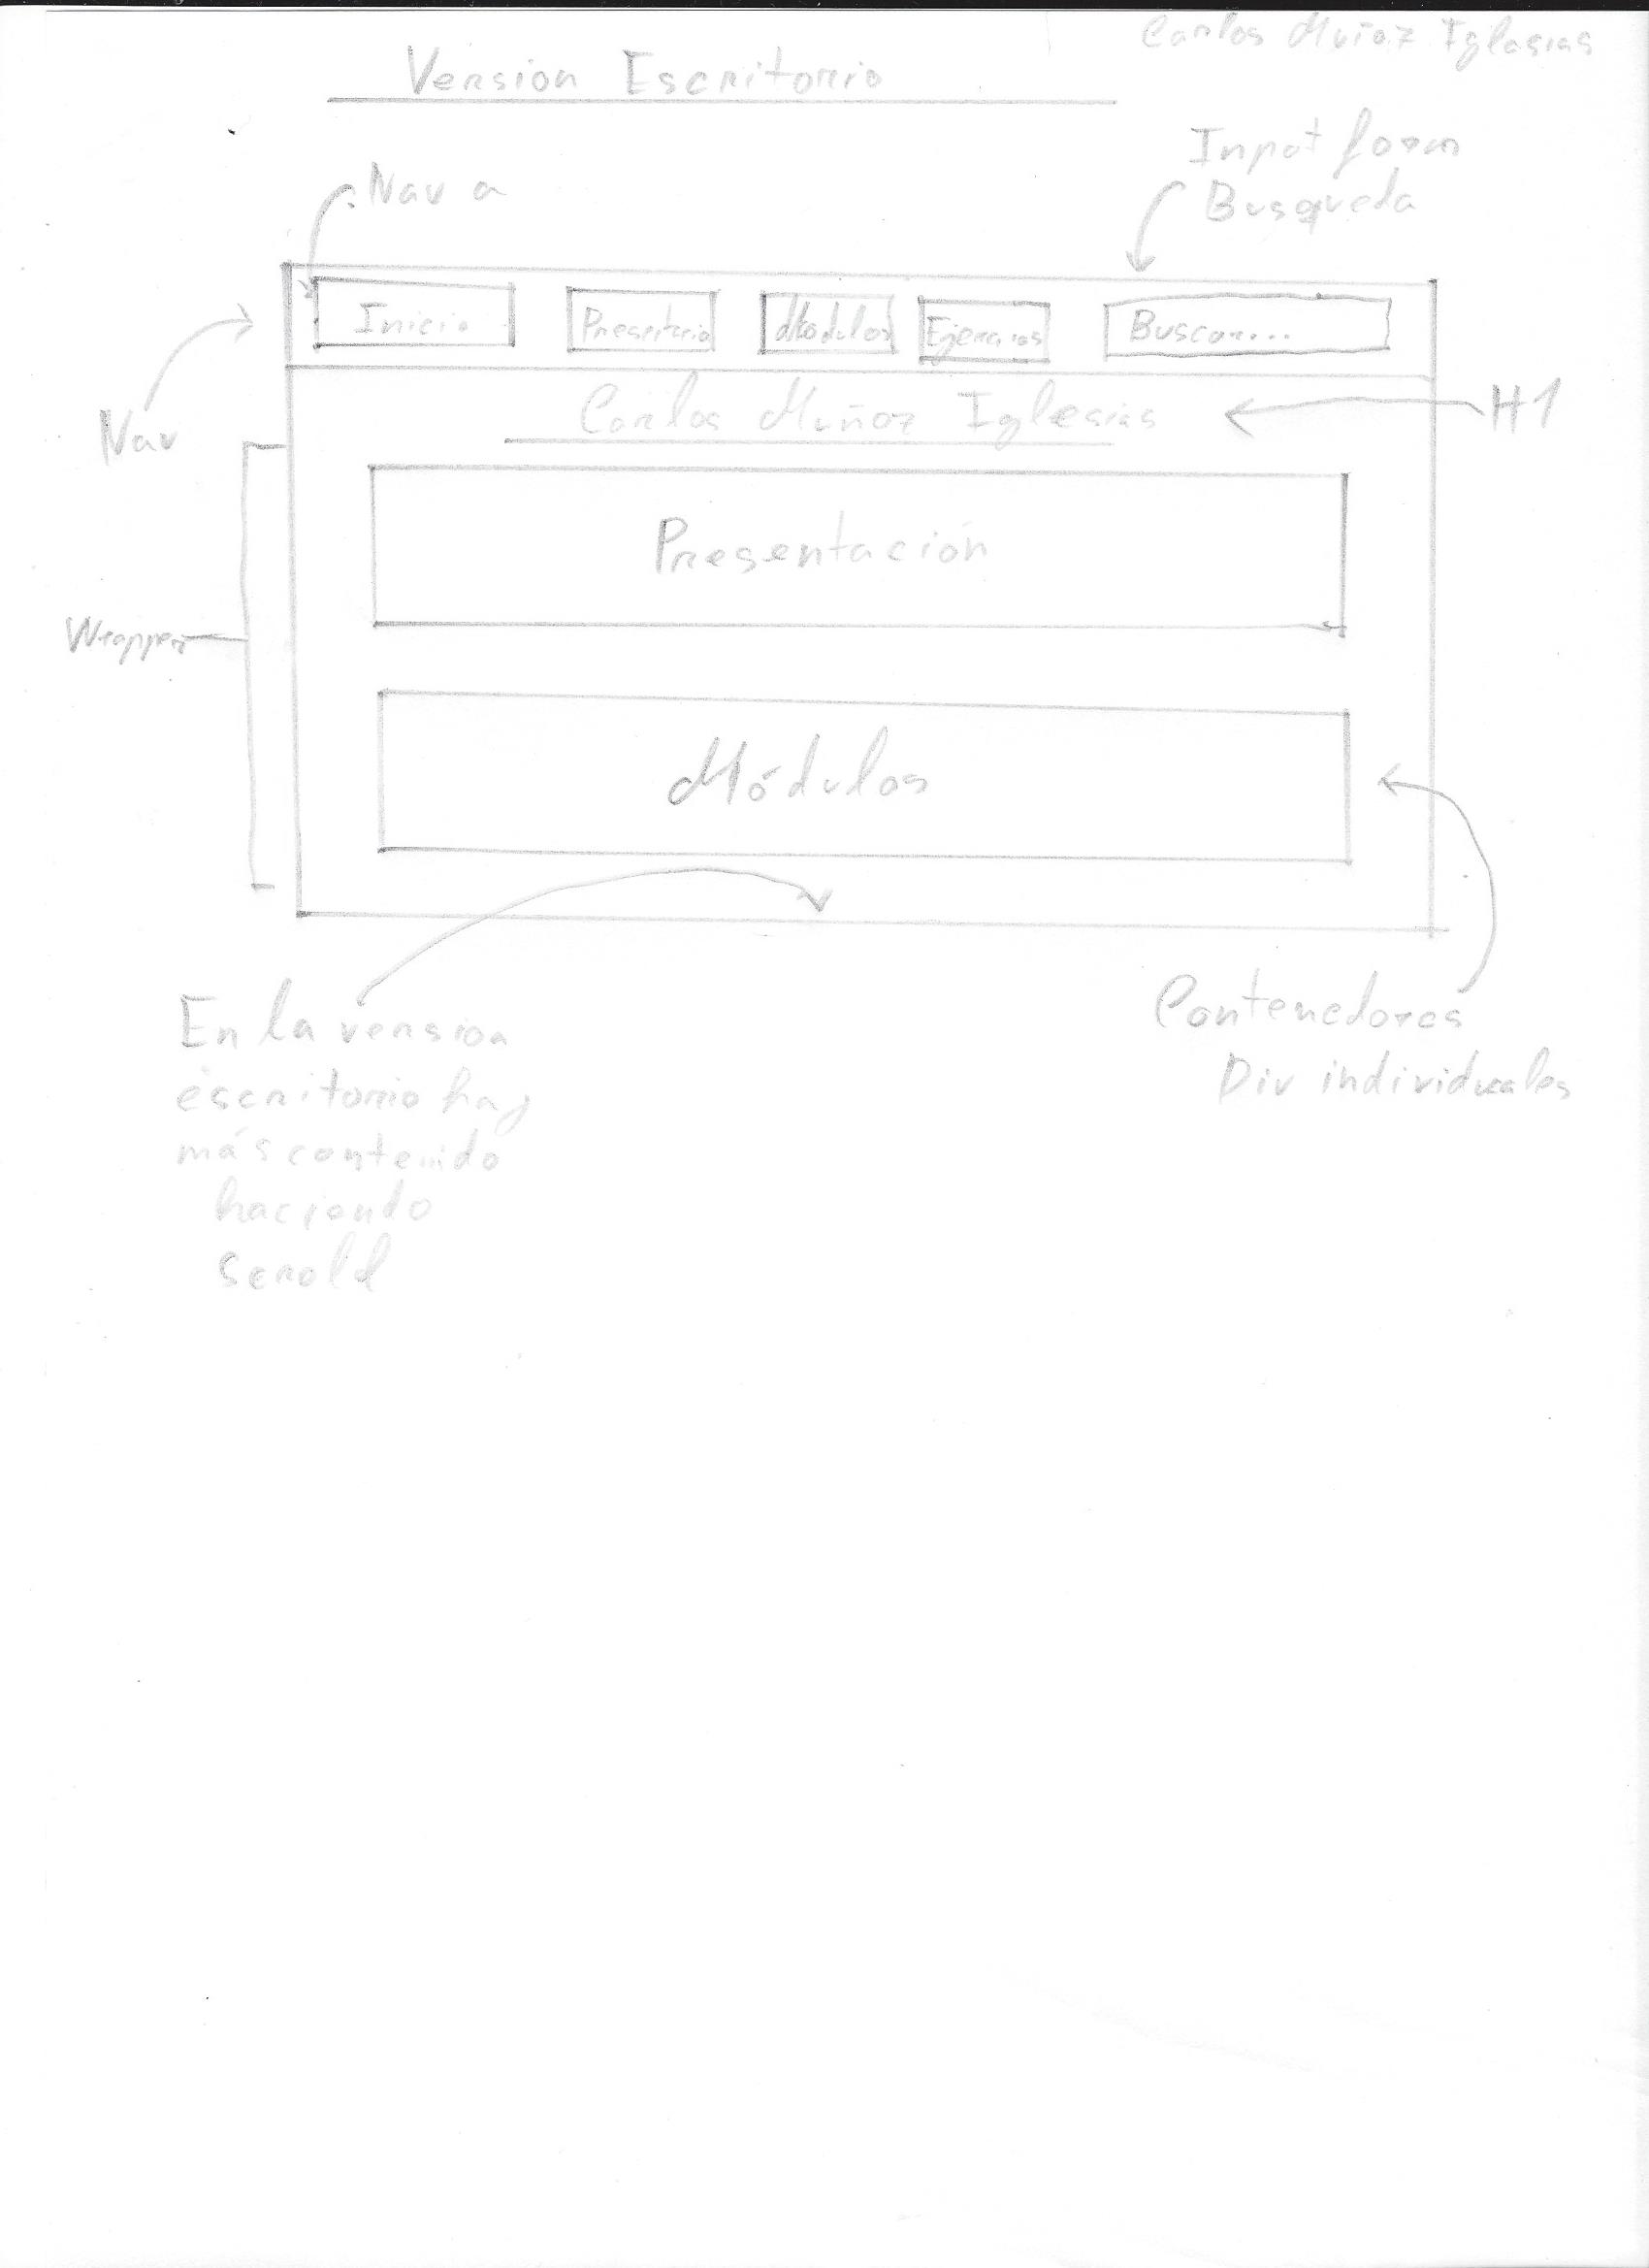 Carlos Muñoz Iglesias
Version Escritorio
Input form
Busqueda
Nav a
Inicio
Presentacio
Modulos
Ejercicios
Buscar...
Nav
Carlos Muñoz Iglesias
H1
Presentación
Wrapper
Módulos
En la version
escritorio hay
más contenido
haciendo
scrold
Contenedores
Div individuales